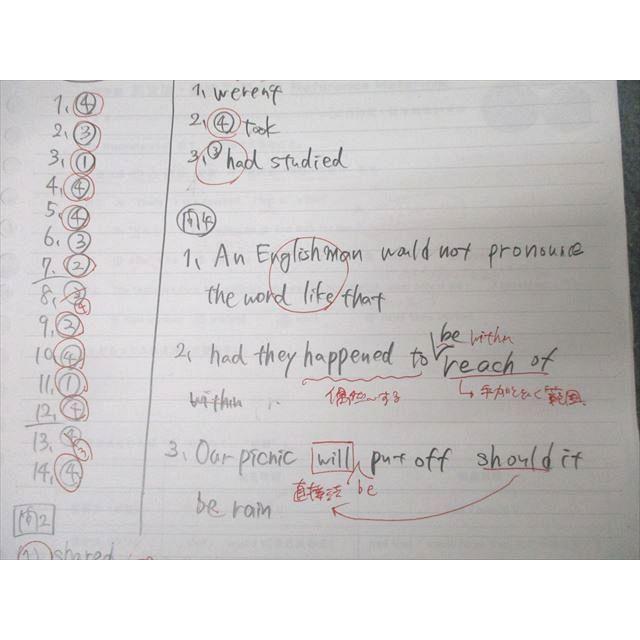 1, ④
2, ③
3, ①
4, ④
5, ④
6, ③
7, ②
8, ④
9, ②
10, ④
11, ①
12, ④
13, ③
14, ④
問2
(1) shared
1, weren't
2, ④ took
3, ③ had studied
問4
1, An Englishman would not pronounce
the word like that
2, had they happened to be within reach of
within
偶然〜する
→手がとどく範囲
3, Our picnic will put off should it
直接法 be
be rain